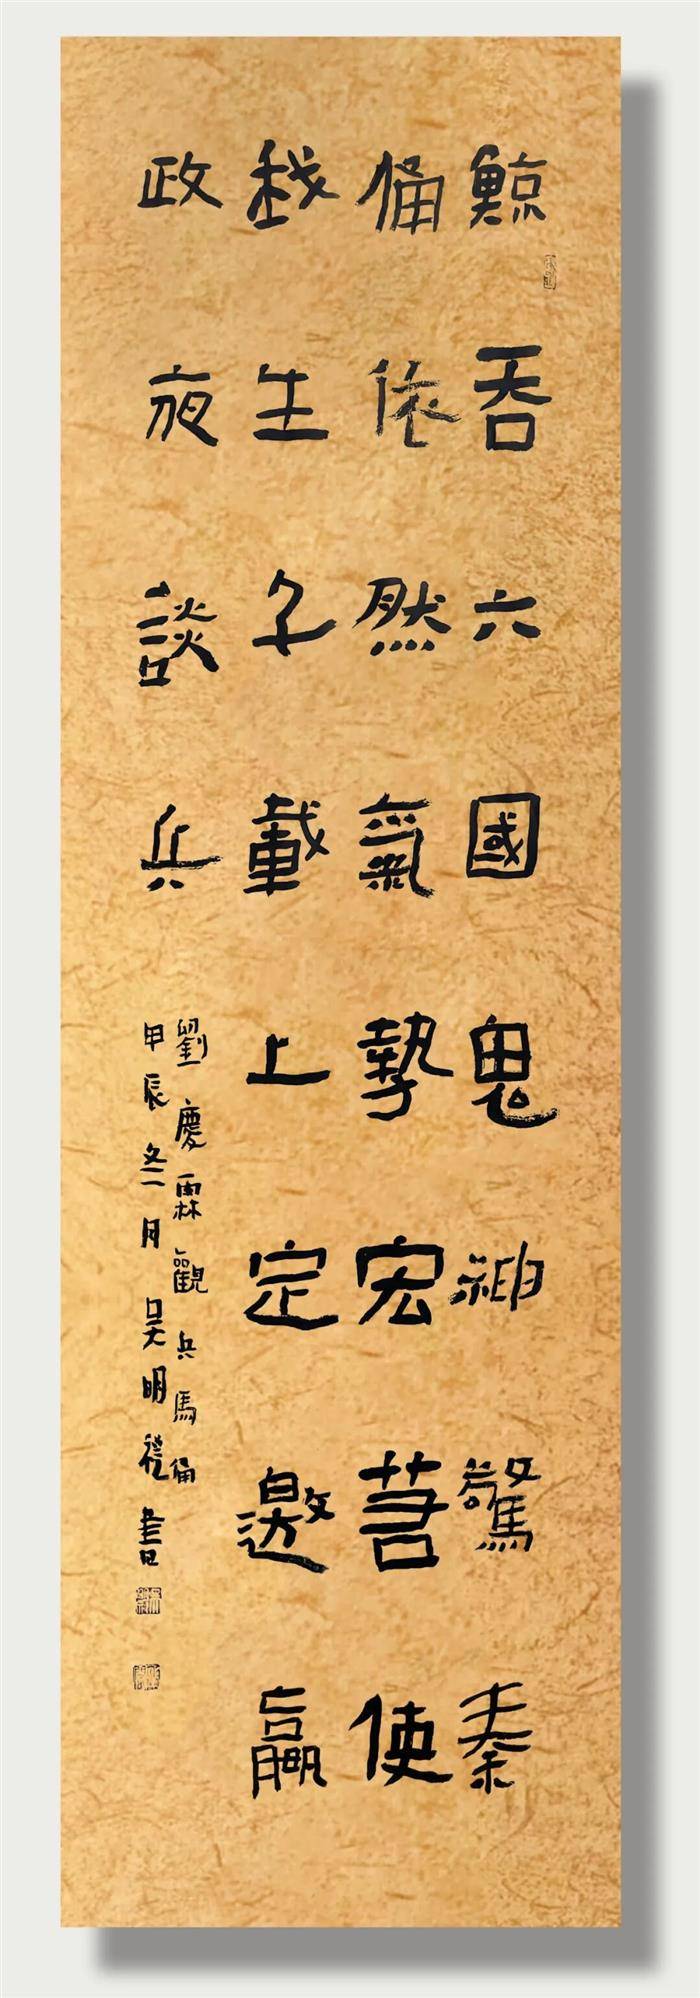 鯨吞六國鬼神驚秦
俑依然氣勢宏若使
我生千載上定邀嬴
政夜談兵
劉慶霖觀兵馬俑
甲辰冬月吴明書